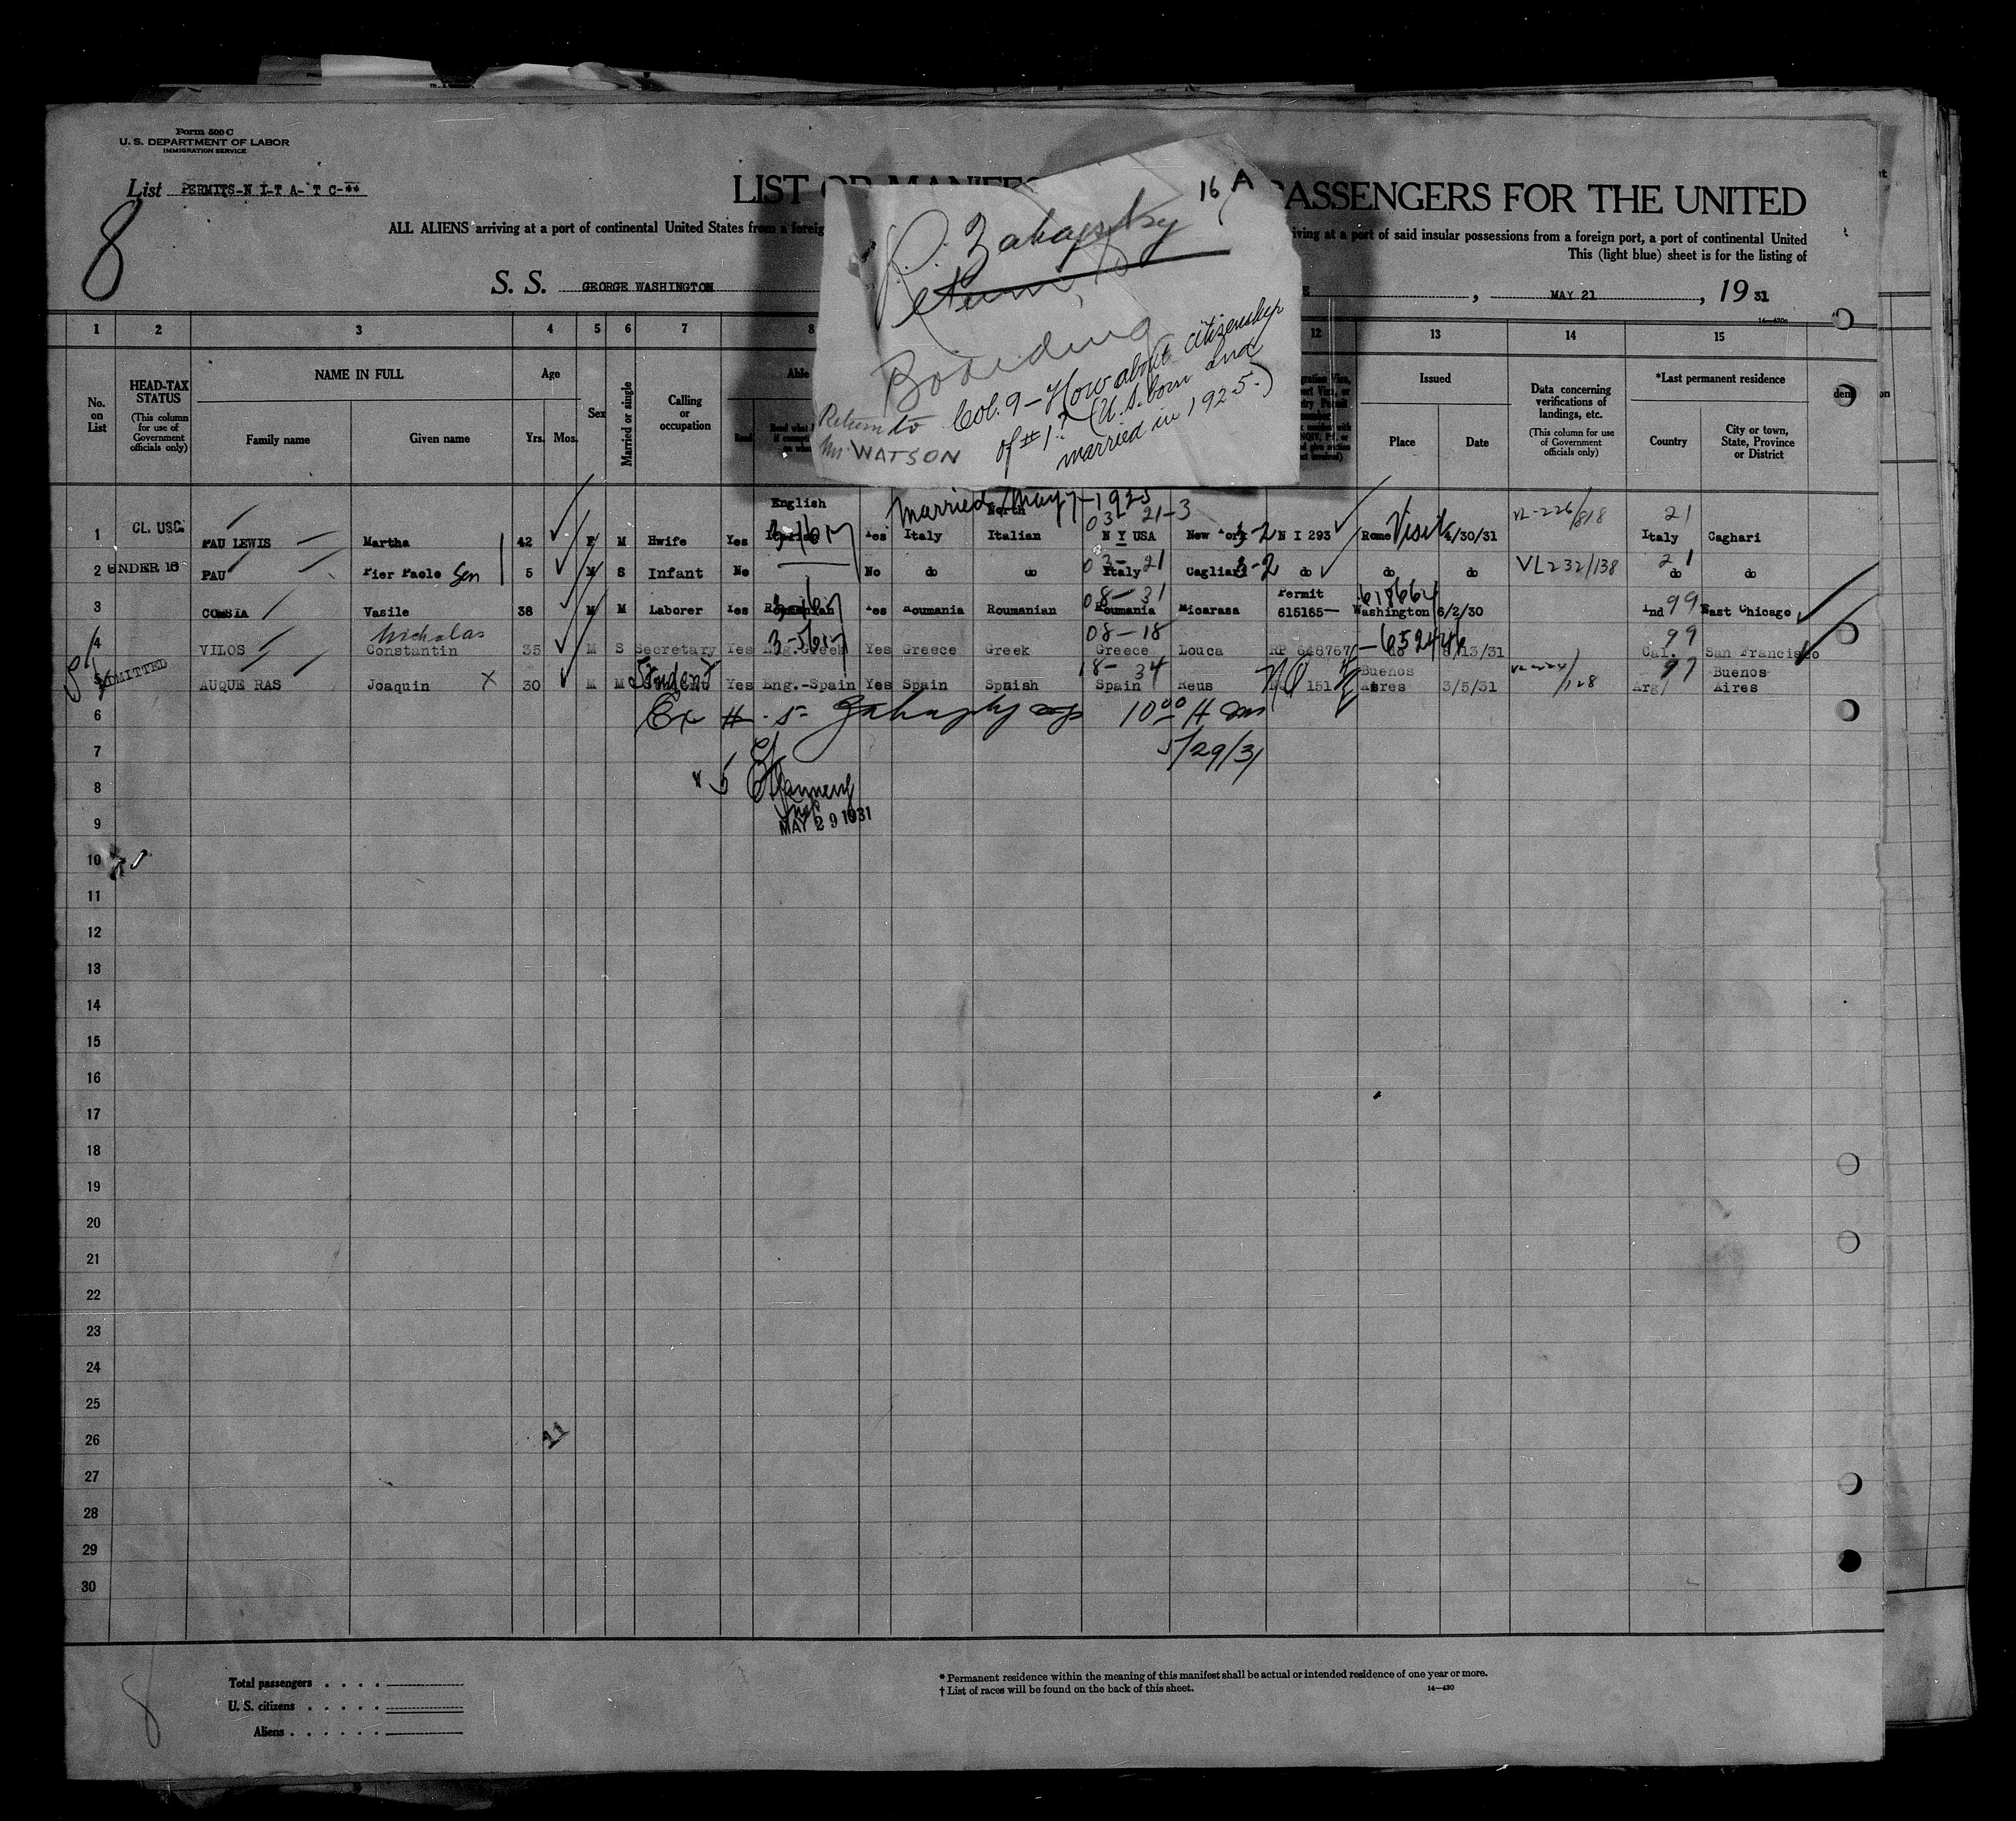 Form 500 C
U. S. DEPARTMENT OF LABOR
IMMIGRATION SERVICE
List PERMITS-N I-T A- T C-**
8
LIST OR MANIFES PASSENGERS FOR THE UNITED
ALL ALIENS arriving at a port of continental United States from a foreig iving at a port of said insular possessions from a foreign port, a port of continental United
This (light blue) sheet is for the listing of
S. S. GEORGE WASHINGTON , MAY 21 , 19 31
16 A
Boarding
Col. 9 – How about citizenship
of #1? (U.S. born and
married in 1925.)
Return to
Mr WATSON
1 2 3 4 5 6 7 8 12 13 14 15
No. on List
HEAD-TAX STATUS
(This column for use of Government officials only)
NAME IN FULL
Family name
Given name
Age
Yrs. Mos.
Sex
Married or single
Calling or occupation
Able
Read
Issued
Place
Date
Data concerning verifications of landings, etc.
(This column for use of Government officials only)
*Last permanent residence
Country
City or town, State, Province or District
Married May 7-1925
English North 03- 21-3 VL-226/818 21
1 CL. USC. PAU LEWIS Martha 42 F M Hwife Yes Italian Yes Italy Italian N Y USA New York 3-2 N I 293 Rome Visit 4/30/31 Italy Caghari
2 UNDER 16 PAU Pier Paolo 5 M S Infant No No do do Italy Cagliari 3-2 do do do VL232/138 21 do do
08-31 Permit 618664
3 COMSIA Vasile 38 M M Laborer Yes Roumanian Yes Roumania Roumanian Roumania Micarasa 615185 Washington 6/2/30 Ind 99 East Chicago
Nicholas 08-18 99
4 VILOS Constantin 35 M S Secretary Yes Eng.Greek Yes Greece Greek Greece Louca RP 648767 652444 Cal. San Francisco
ADMITTED Student 18-34 NO Buenos 97 Buenos
5 AUQUE RAS Joaquin X 30 M M Yes Eng.-Spain Yes Spain Spnish Spain Reus 151 Aires 3/5/31 Arg/ Aires
6 Ex # 5 10 00
7 5/29/31
8 5
9 MAY 29 1931
10
11
12
13
14
15
16
17
18
19
20
21
22
23
24
25
26 11
27
28
29
30
8
Total passengers . . . .
U. S. citizens . . . . .
Aliens . . . . . .
* Permanent residence within the meaning of this manifest shall be actual or intended residence of one year or more.
† List of races will be found on the back of this sheet. 14—430